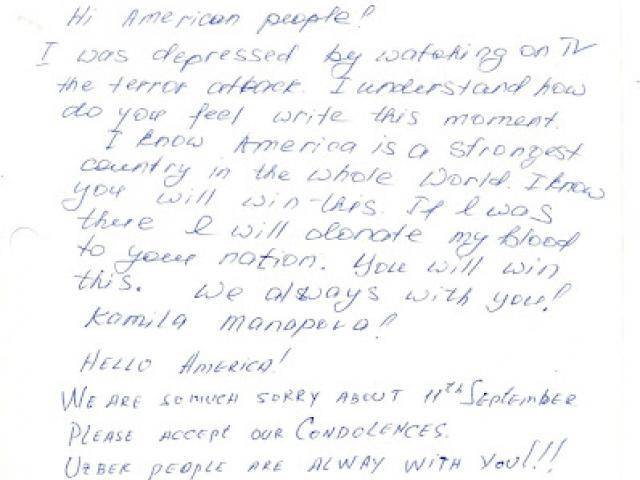 Hi American people!
I was depressed by watching on TV
the terror attack. I understand how
do you feel write this moment.
I know America is a strongest
country in the whole World. I know
you will win this. If I was
there I will donate my blood
to your nation. You will win
this. We always with you!
Kamila Manapova!
HELLO AMERICA!
WE ARE SO MUCH SORRY ABOUT 11th SEPTEMBER
PLEASE ACCEPT OUR CONDOLENCES.
UZBEK PEOPLE ARE ALWAY WITH YOU!!!